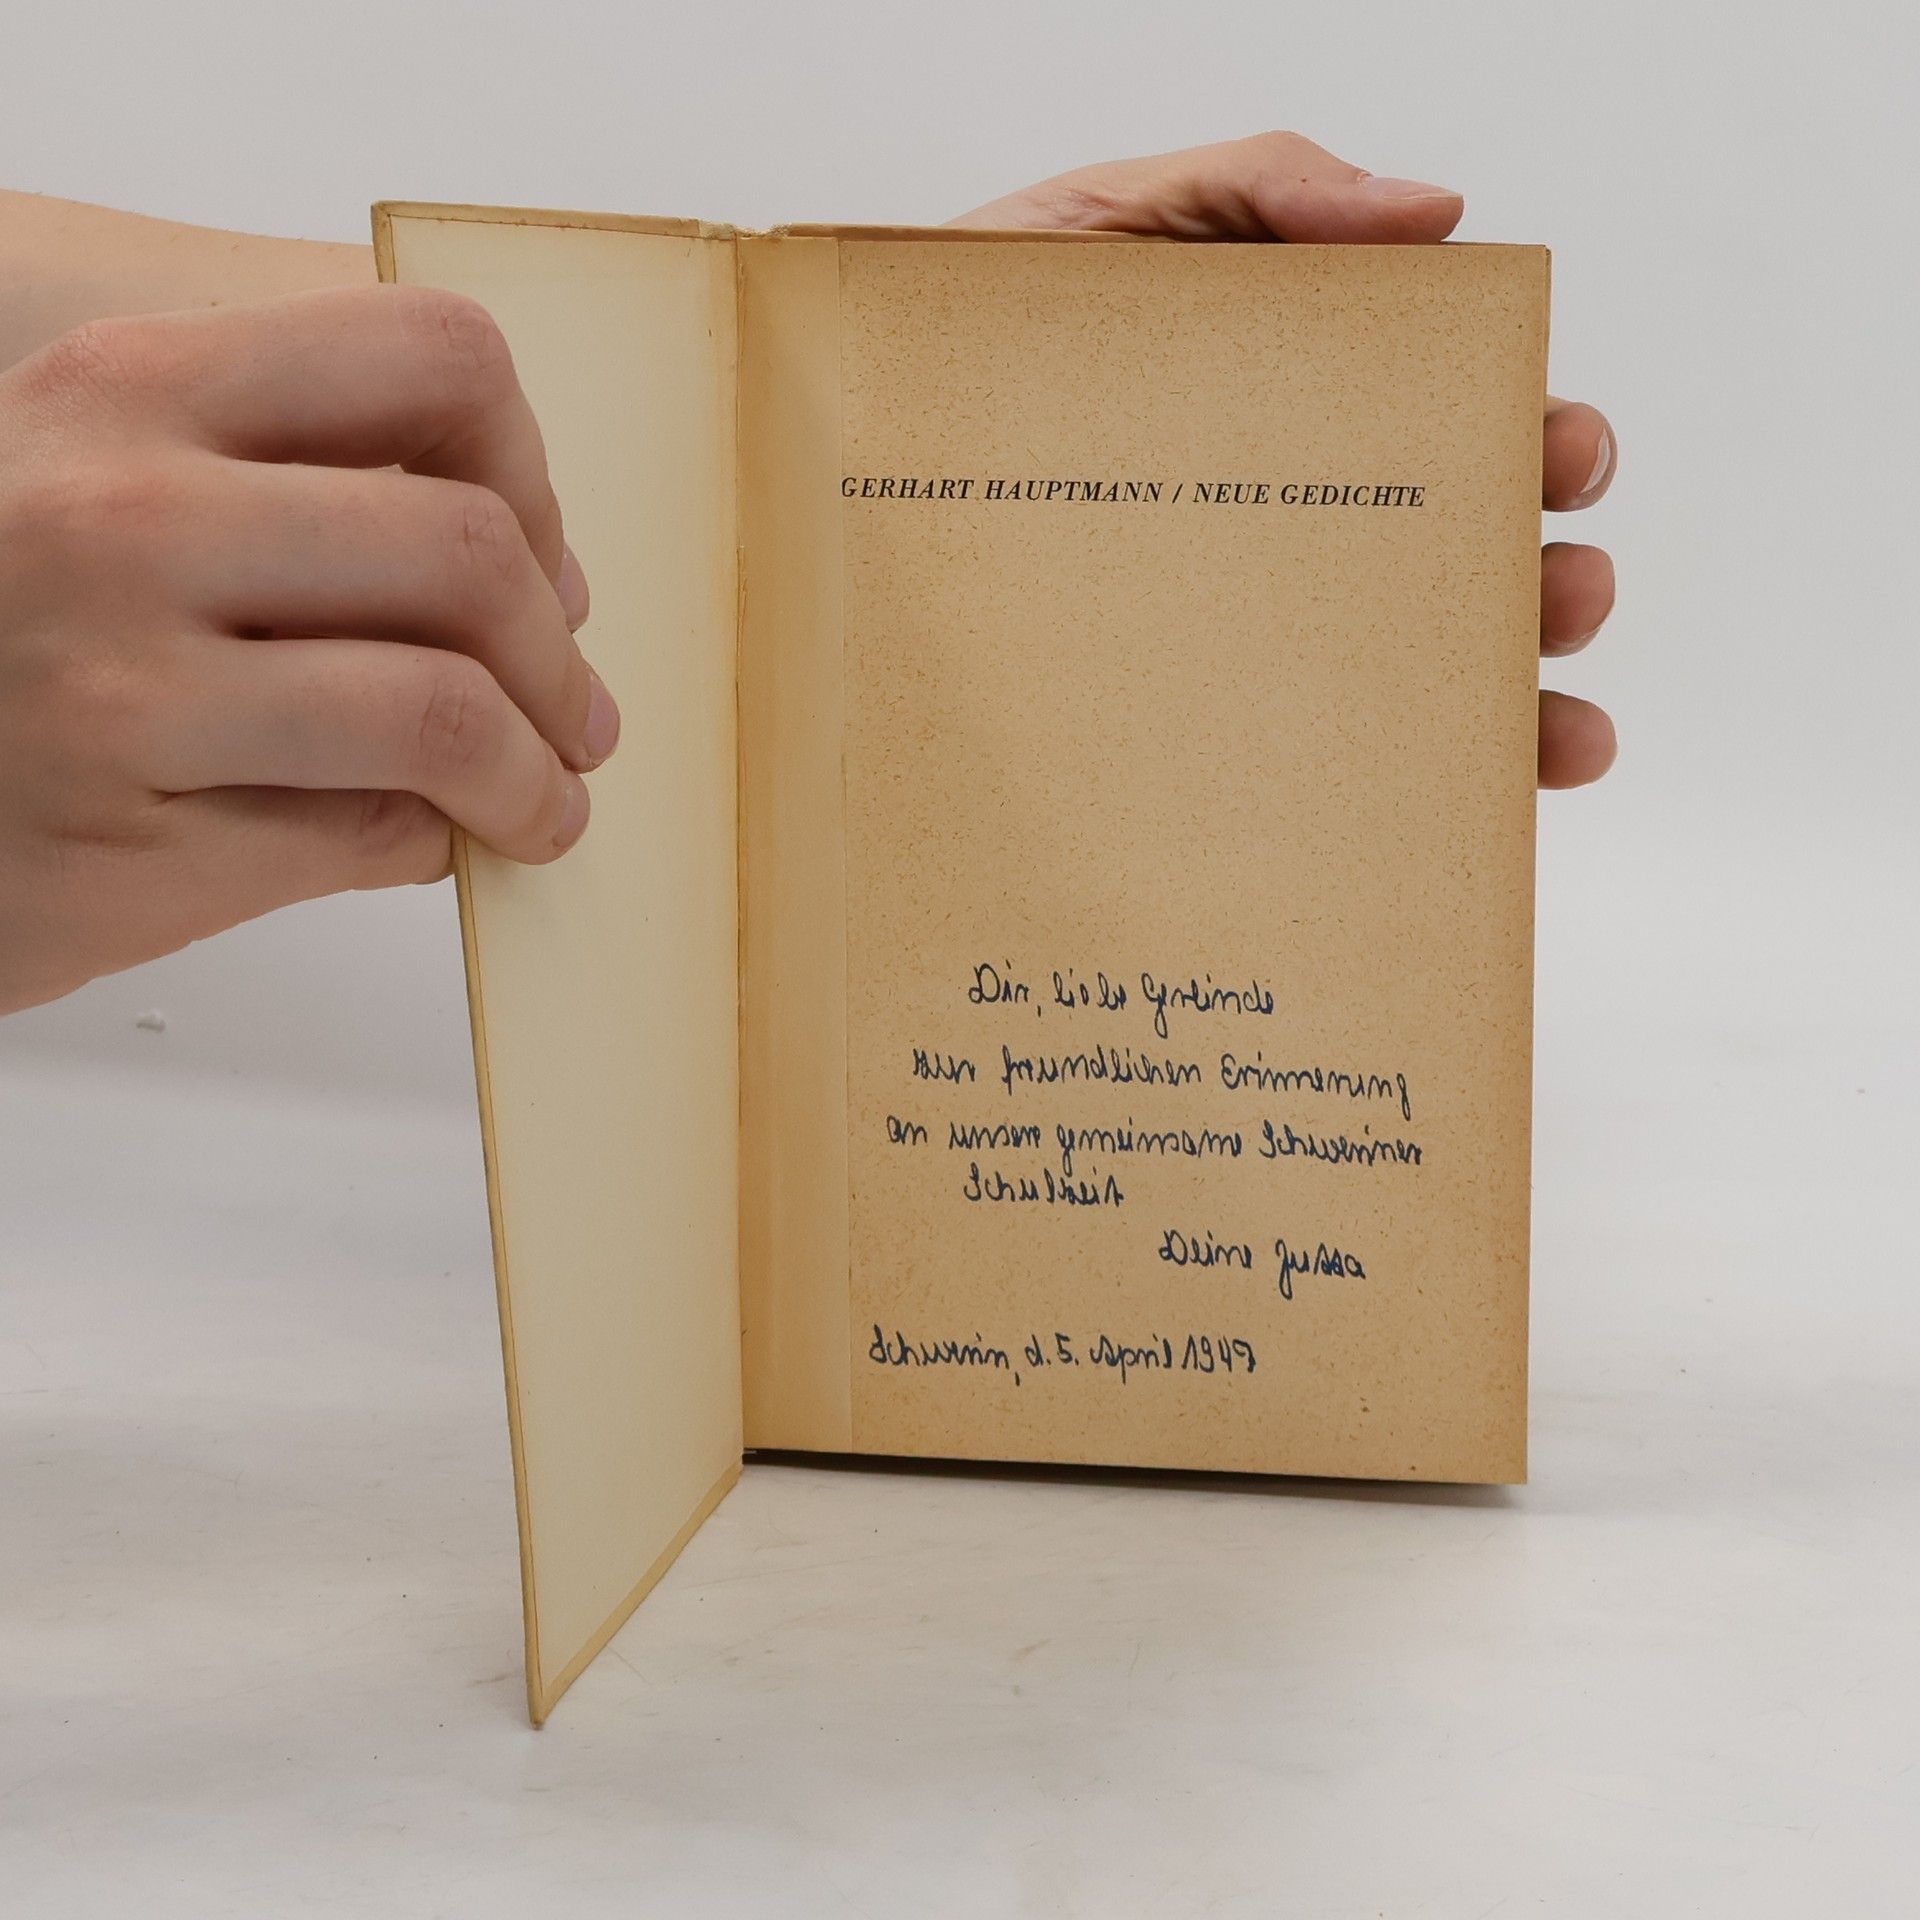 GERHART HAUPTMANN / NEUE GEDICHTE
Dir, liebe Gerlinde
zur freundlichen Erinnerung
an unsere gemeinsame Schweriner
Schulzeit
Deine Jussa
Schwerin, d. 5. April 1947